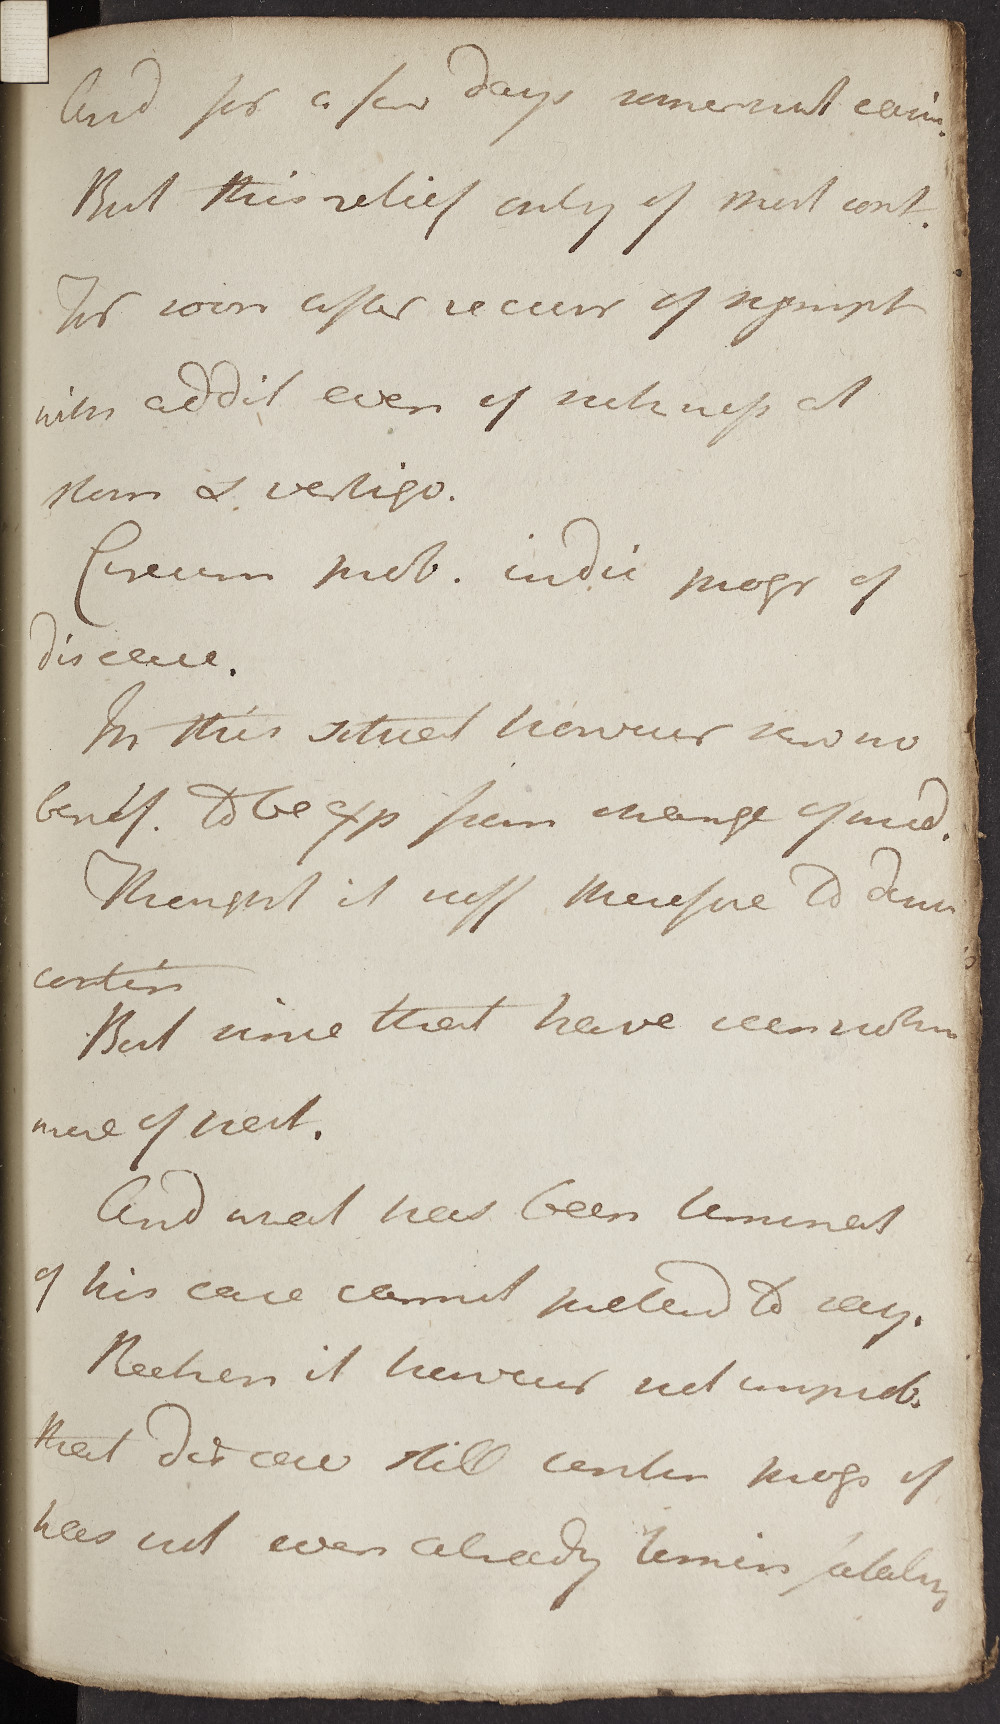 And for a few days somewhat easier.
But this relief only of short cont.
For soon after recurr of sympt
with addit even of sickness at
stom & vertigo.
Circum prob. indic progr of
disease.
In this situat however saw no
benef. to be exp from change of med.
Thought it suff therefore to
contin
But since that have seen nothin
more of pat.
And what has been terminat
of his case cannot pretend to say.
Reckon it however not improb.
that disease still contin progr if
has not even already termin fatally